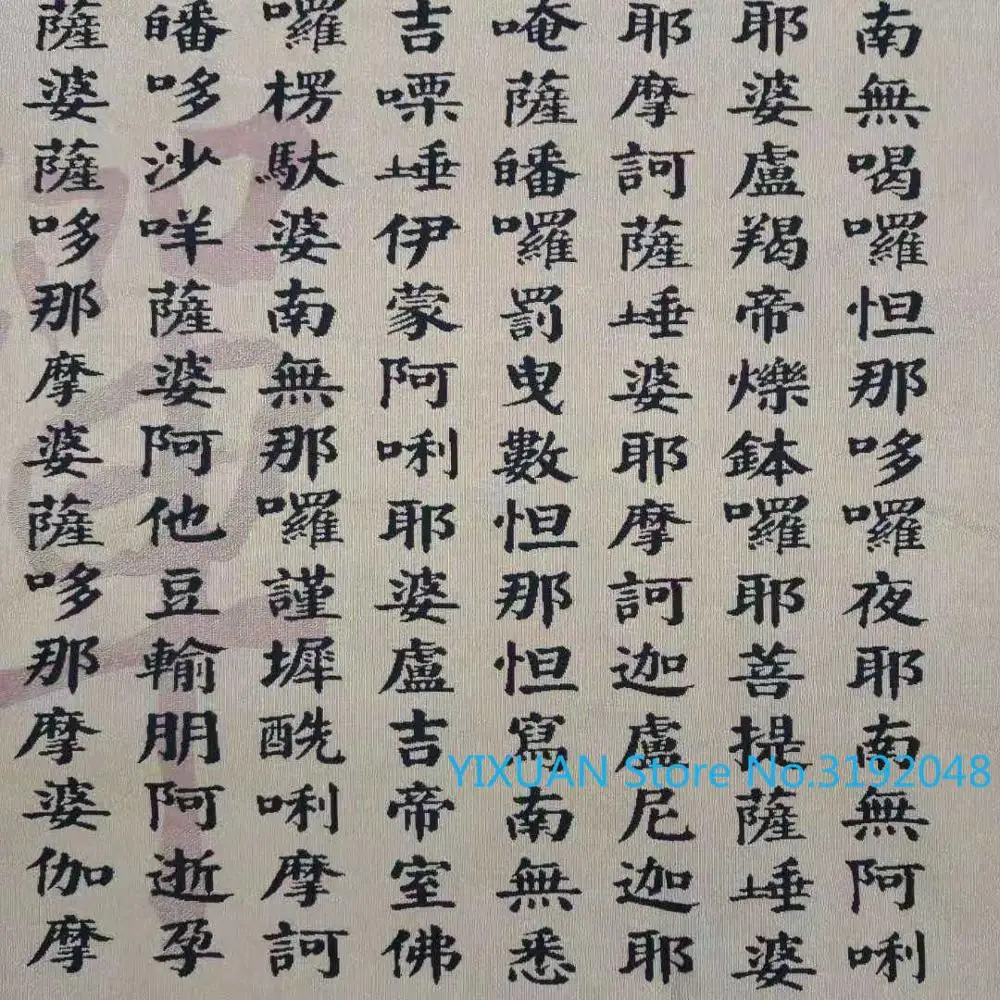 南無喝囉怛那哆囉夜耶南無阿唎
耶婆盧羯帝爍鉢囉耶菩提薩埵婆
耶摩訶薩埵婆耶摩訶迦盧尼迦耶
唵薩皤囉罰曳數怛那怛寫南無悉
吉㗚埵伊蒙阿唎耶婆盧吉帝室佛
囉楞馱婆南無那囉謹墀酰唎摩訶
皤哆沙咩薩婆阿他豆輸朋阿逝孕
薩婆薩哆那摩婆薩哆那摩婆伽摩
YIXUAN Store No.3192048